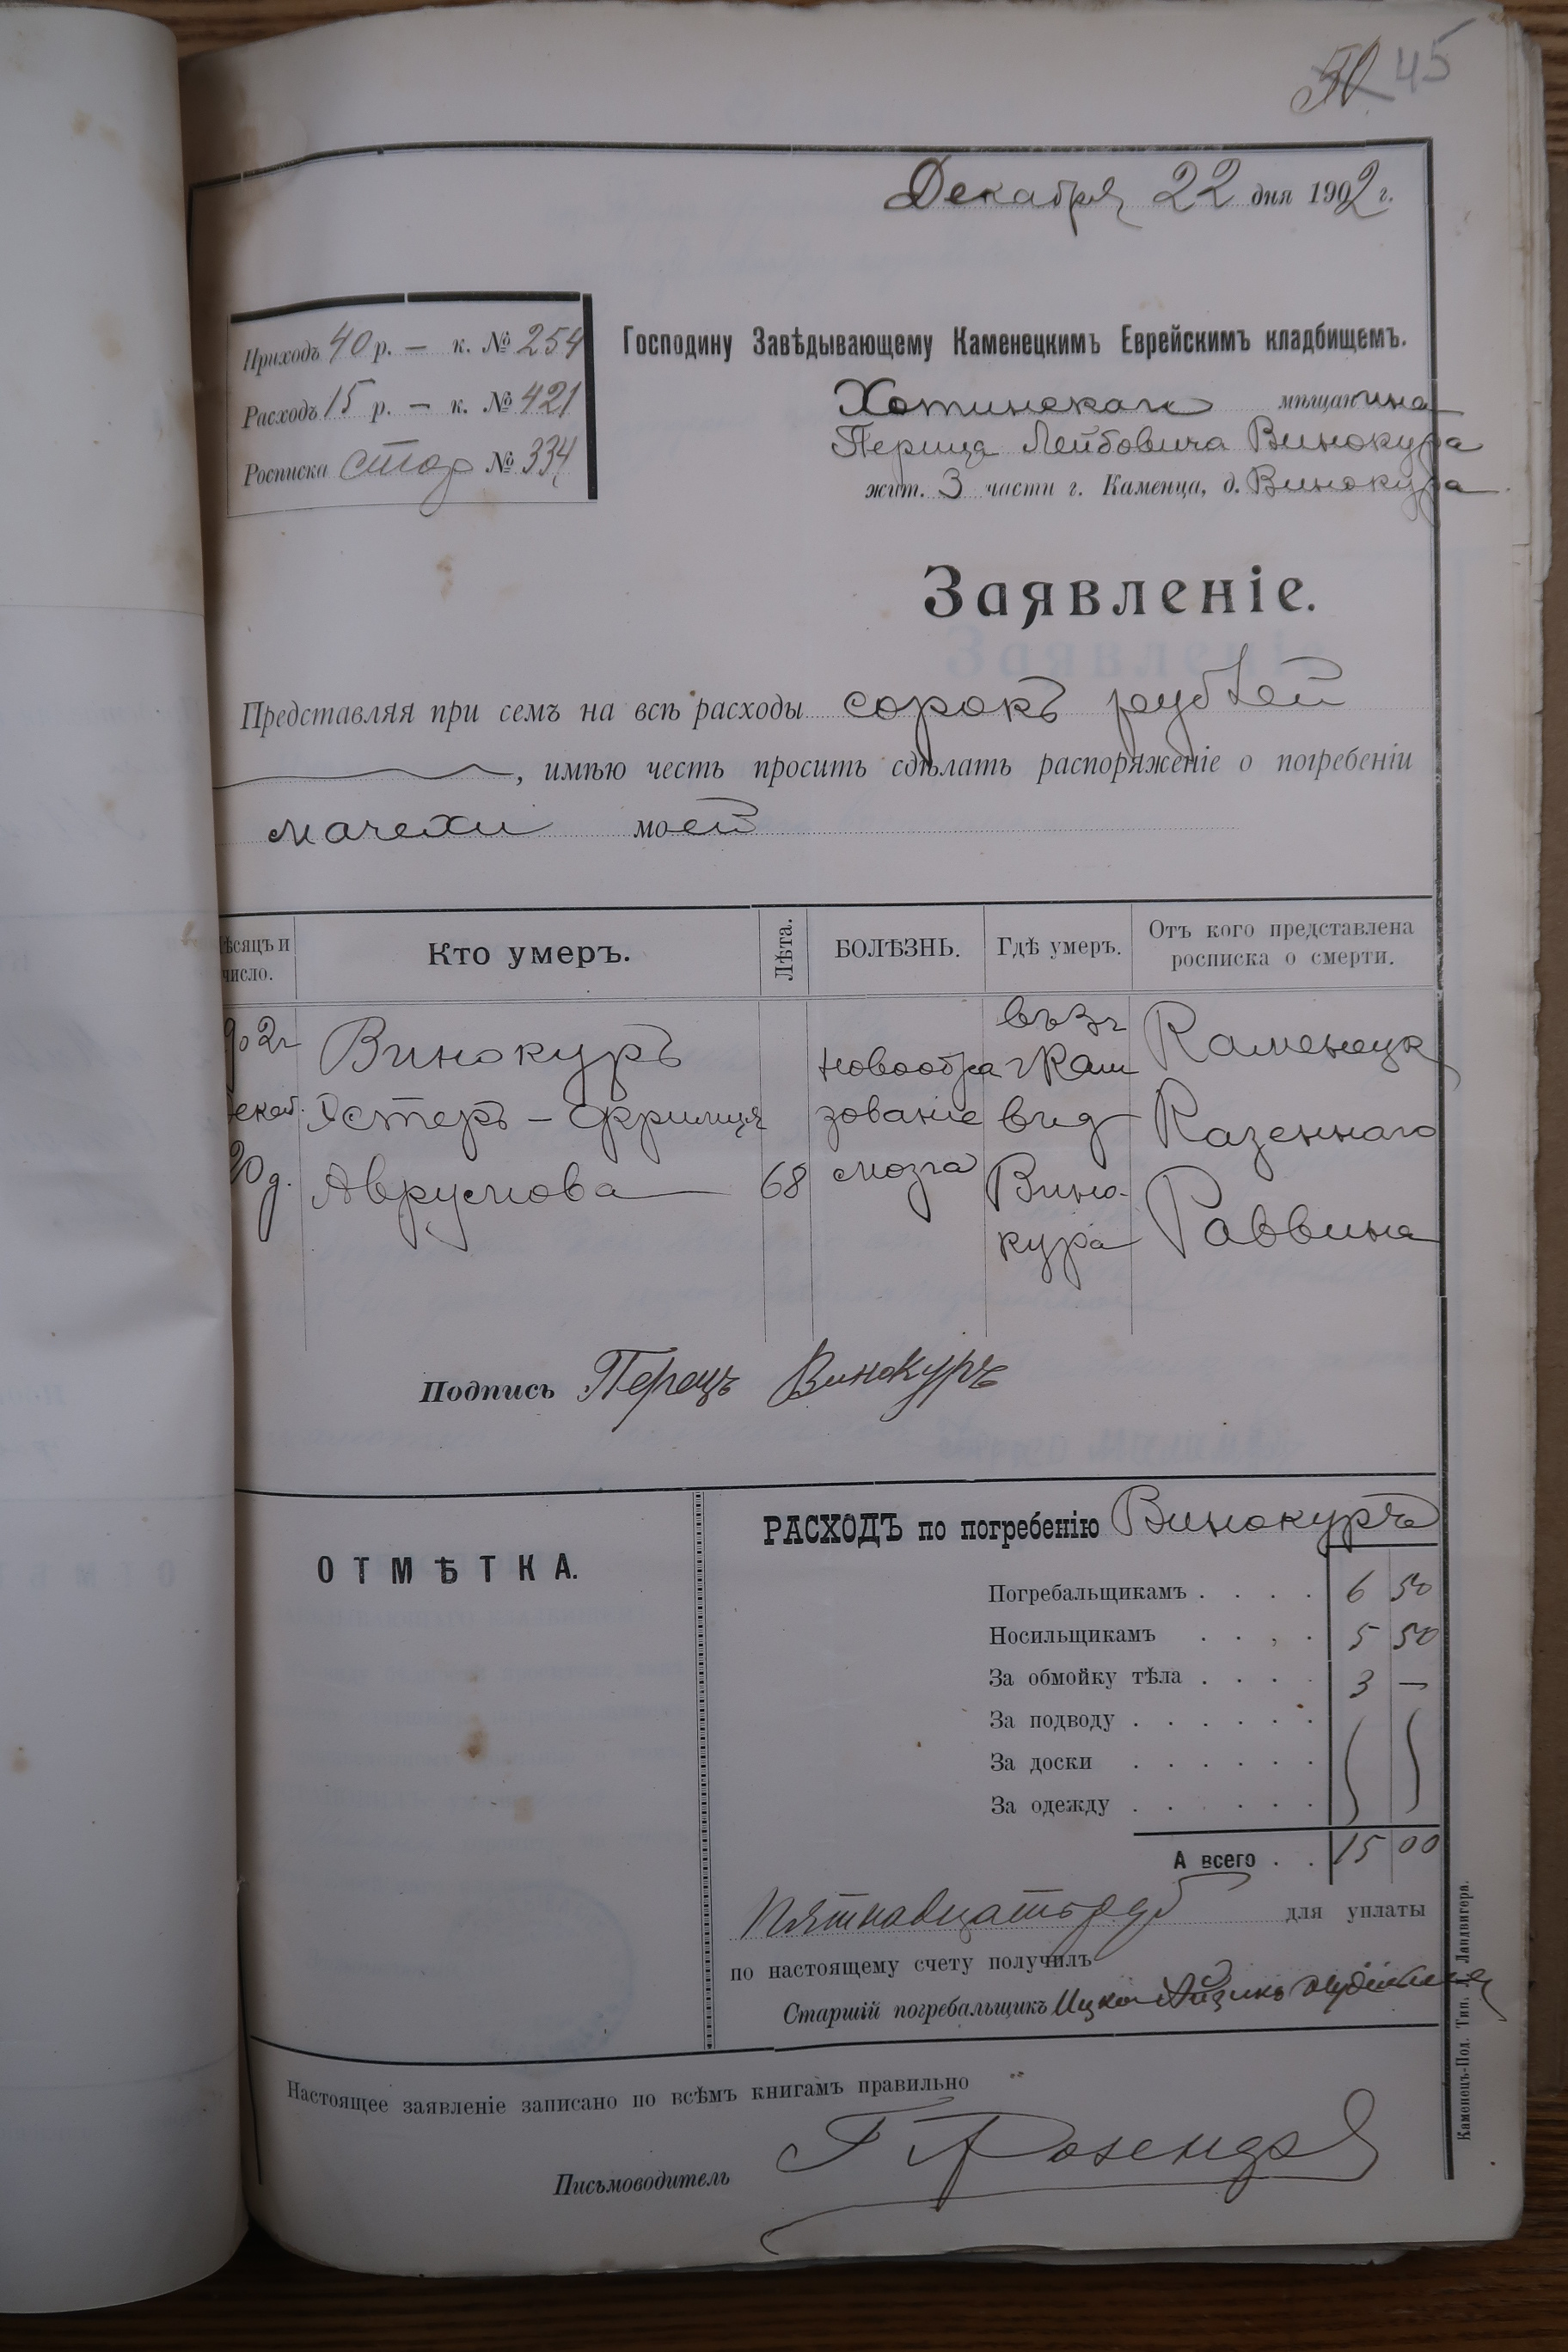 50 45
Декабря 22 дня 1902 г.
Приходъ 40 р. — к. № 254
Расходъ 15 р. — к. № 421
Росписка стар № 334
Господину Завѣдывающему Каменецкимъ Еврейскимъ кладбищемъ.
Хотинскаго мѣщанина
Переца Лейбовича Винокура
жит. 3 части г. Каменца, д. Винокура
Заявленіе.
Представляя при семъ на всѣ расходы сорокъ рублей
, имѣю честь просить сдѣлать распоряженіе о погребеніи
мачехи моей
ѣсяцъ и число. Кто умеръ. Лѣта. БОЛѢЗНЬ. Гдѣ умеръ. Отъ кого представлена росписка о смерти.
902г Винокуръ новообра въ 3ч г Кам Каменецк
екаб. Эстеръ - Фримця зованіе в. д Казеннаго
20 д. Аврумова 68 мозга Вино-кура Раввина
Подпись Перецъ Винокуръ
ОТМѢТКА.
РАСХОДЪ по погребенію Винокуръ
Погребальщикамъ . . . . 6 50
Носильщикамъ . . , . 5 50
За обмойку тѣла . . . . 3 —
За подводу . . . . . .
За доски . . . . . .
За одежду . . . . . .
А всего . . 15 00
Пятнадцать руб для уплаты
по настоящему счету получилъ
Старшій погребальщикъ Ицко Айзикъ
Настоящее заявленіе записано по всѣмъ книгамъ правильно
Письмоводитель
Каменецъ-Под. Тип. Л. Ландвигера.